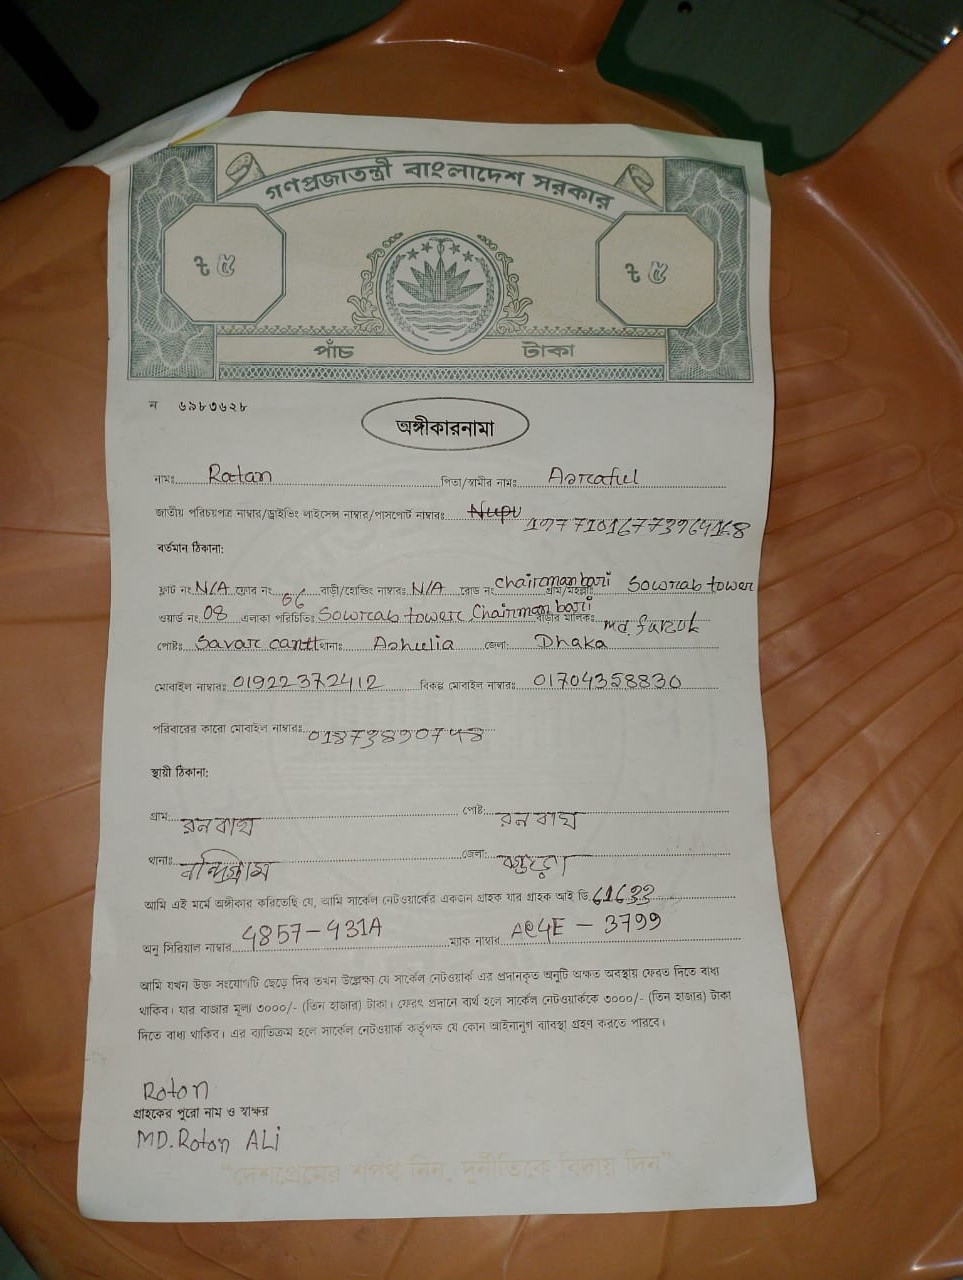 গণপ্রজাতন্ত্রী বাংলাদেশ সরকার
৳ ৫ ৳ ৫
পাঁচ টাকা
ন ৬৯৮৩৬২৮
অঙ্গীকারনামা
নামঃ Ratan পিতা/স্বামীর নামঃ Asraful
জাতীয় পরিচয়পত্র নাম্বার/ড্রাইভিং লাইসেন্স নাম্বার/পাসপোর্ট নাম্বারঃ
বর্তমান ঠিকানা:
ফ্লাট নং N/A ফ্লোর নং 06 বাড়ী/হোল্ডিং নাম্বারঃ N/A রোড নং chairman bari গ্রাম/মহল্লাঃ Sowrab tower
ওয়ার্ড নং 08 এলাকা পরিচিতিঃ Sowrab tower Chairman bari বাড়ীর মালিকঃ Md. faruk
পোষ্টঃ Savar cantt থানাঃ Ashulia জেলা: Dhaka
মোবাইল নাম্বারঃ 01922372412 বিকল্প মোবাইল নাম্বারঃ 01704358830
পরিবারের কারো মোবাইল নাম্বারঃ
স্থায়ী ঠিকানা:
গ্রাম: রনবাঘা পোষ্ট: রনবাঘা
থানাঃ নন্দিগ্রাম জেলা: বগুড়া
আমি এই মর্মে অঙ্গীকার করিতেছি যে, আমি সার্কেল নেটওয়ার্কের একজন গ্রাহক যার গ্রাহক আই ডি 61633
অনু সিরিয়াল নাম্বার 4857-431A ম্যাক নাম্বার AC4E - 3799
আমি যখন উক্ত সংযোগটি ছেড়ে দিব তখন উল্লেক্ষ্য যে সার্কেল নেটওয়ার্ক এর প্রদানকৃত অনুটি অক্ষত অবস্থায় ফেরত দিতে বাধ্য
থাকিব। যার বাজার মূল্য ৩০০০/- (তিন হাজার) টাকা। ফেরৎ প্রদানে ব্যর্থ হলে সার্কেল নেটওয়ার্ককে ৩০০০/- (তিন হাজার) টাকা
দিতে বাধ্য থাকিব। এর ব্যতিক্রম হলে সার্কেল নেটওয়ার্ক কর্তৃপক্ষ যে কোন আইনানুগ ব্যাবস্থা গ্রহণ করতে পারবে।
Roton
গ্রাহকের পুরো নাম ও স্বাক্ষর
MD. Roton ALi
"দেশপ্রেমের শপথ নিন, দুর্নীতিকে বিদায় দিন"